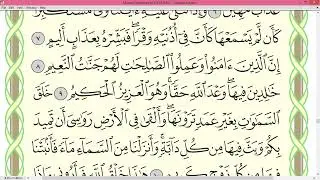 عَذَابٌ مُّهِينٌ ۝٦ وَإِذَا تُتْلَىٰ عَلَيْهِ ءَايَٰتُنَا وَلَّىٰ مُسْتَكْبِرًا
كَأَن لَّمْ يَسْمَعْهَا كَأَنَّ فِىٓ أُذُنَيْهِ وَقْرًا ۖ فَبَشِّرْهُ بِعَذَابٍ أَلِيمٍ ۝٧
إِنَّ ٱلَّذِينَ ءَامَنُوا۟ وَعَمِلُوا۟ ٱلصَّٰلِحَٰتِ لَهُمْ جَنَّٰتُ ٱلنَّعِيمِ ۝٨
خَٰلِدِينَ فِيهَا ۖ وَعْدَ ٱللَّهِ حَقًّا ۚ وَهُوَ ٱلْعَزِيزُ ٱلْحَكِيمُ ۝٩ خَلَقَ
ٱلسَّمَٰوَٰتِ بِغَيْرِ عَمَدٍ تَرَوْنَهَا ۖ وَأَلْقَىٰ فِى ٱلْأَرْضِ رَوَٰسِىَ أَن تَمِيدَ
بِكُمْ وَبَثَّ فِيهَا مِن كُلِّ دَآبَّةٍ ۚ وَأَنزَلْنَا مِنَ ٱلسَّمَآءِ مَآءً فَأَنۢبَتْنَا